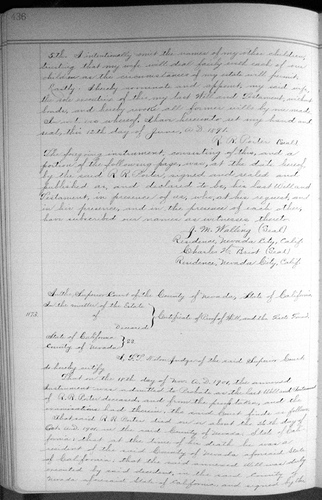 436
5th I intentionally omit the names of my other children,
trusting that my wife will deal fairly with each of our
children as the circumstances of my estate will permit.
Lastly I hereby nominate and appoint my said wife
the executrix of this my last Will and Testament, without
bonds and hereby revoke all former wills by me made
In witness whereof, I have hereunto set my hand and
seal this 12th day of June, A.D. 1891.
R. R. Porter (Seal)
The foregoing instrument, consisting of this, and a
portion of the following page, was, at the date hereof
by the said R R Porter, signed and sealed and
published as, and declared to be, his last Will and
Testament, in presence of us, who, at his request, and
in his presence, and in the presence of each other,
have subscribed our names as witnesses thereto
J. M. Walling (Seal)
Residence, Nevada City, Calif
Charles W. (Seal)
Residence, Nevada City, Calif.
In the Superior Court of the County of Nevada, State of California
In the matter of the Estate
of
Certificate of Proof of Will, and the Facts Found
Deceased
State of California
County of Nevada
ss
I, Judge of the said Superior Court
do hereby certify
That on the 18th day of Nov A.D. 1901, the annexed
instrument was admitted to Probate as the last Will and Testament
of R. R. Porter deceased, and from the proofs taken, and the
examination had therein, the said Court finds as follows
That said R. R. Porter died on or about the day of
Oct A.D. 1901, in the said County of Nevada, State of
California; that at the time of his death he was a
resident of the said County of Nevada aforesaid State
of California; that the said annexed Will was duly
executed by said decedent, in the said County of
Nevada aforesaid State of California, and signed by the